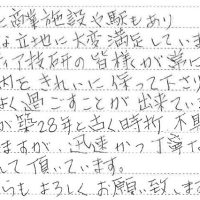 に商業施設や駅もあり
な立地に大変満足していま
ィア技研の皆様が常に
内をきれいに保って下さり
よく過ごすことが出来てい
が築28年と古く時折不具
ますが、迅速かつ丁寧な
して頂いています。
らもよろしくお願い致します